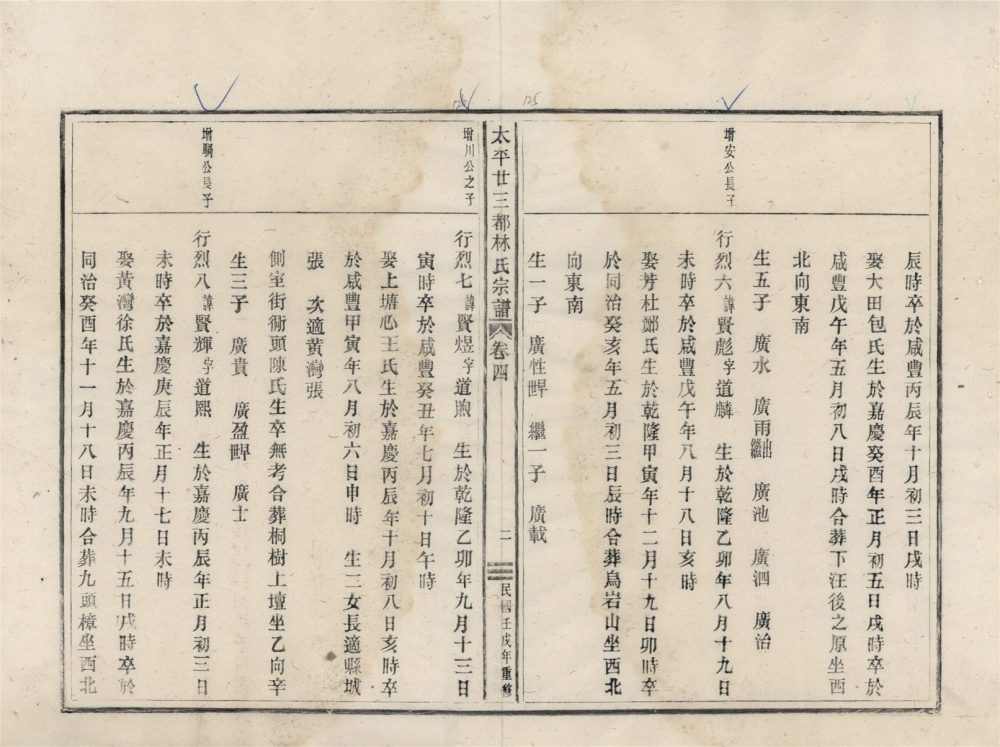 辰時卒於咸豐丙辰年十月初三日戌時
娶大田包氏生於嘉慶癸酉年正月初五日戌時卒於
咸豐戊午年五月初八日戌時合葬下汪後之原坐西
北向東南
生五子 廣水 廣雨出繼 廣池 廣泗 廣治
增安公長子
行烈六諱賢彪字道麟 生於乾隆乙卯年八月十九日
未時卒於咸豐戊午年八月十八日亥時
娶芳杜鄭氏生於乾隆甲寅年十二月十九日卯時卒
於同治癸亥年五月初三日辰時合葬烏岩山坐西北
向東南
生一子 廣性 繼一子 廣載
125
太平廿三都林氏宗譜 卷四 二 民國壬戌年重修
增川公之子
行烈七諱賢煜字道煦 生於乾隆乙卯年九月十三日
寅時卒於咸豐癸丑年七月初十日午時
娶上塘心王氏生於嘉慶丙辰年十月初八日亥時卒
於咸豐甲寅年八月初六日申時 生二女長適縣城
張 次適黃灣張
側室街衕頭陳氏生卒無考合葬桐樹上壇坐乙向辛
生三子 廣貴 廣盈 廣士
增驕公長子
行烈八諱賢輝字道熙 生於嘉慶丙辰年正月初三日
未時卒於嘉慶庚辰年正月十七日未時
娶黃灣徐氏生於嘉慶丙辰年九月十五日戌時卒於
同治癸酉年十一月十八日未時合葬九頭樟坐西北